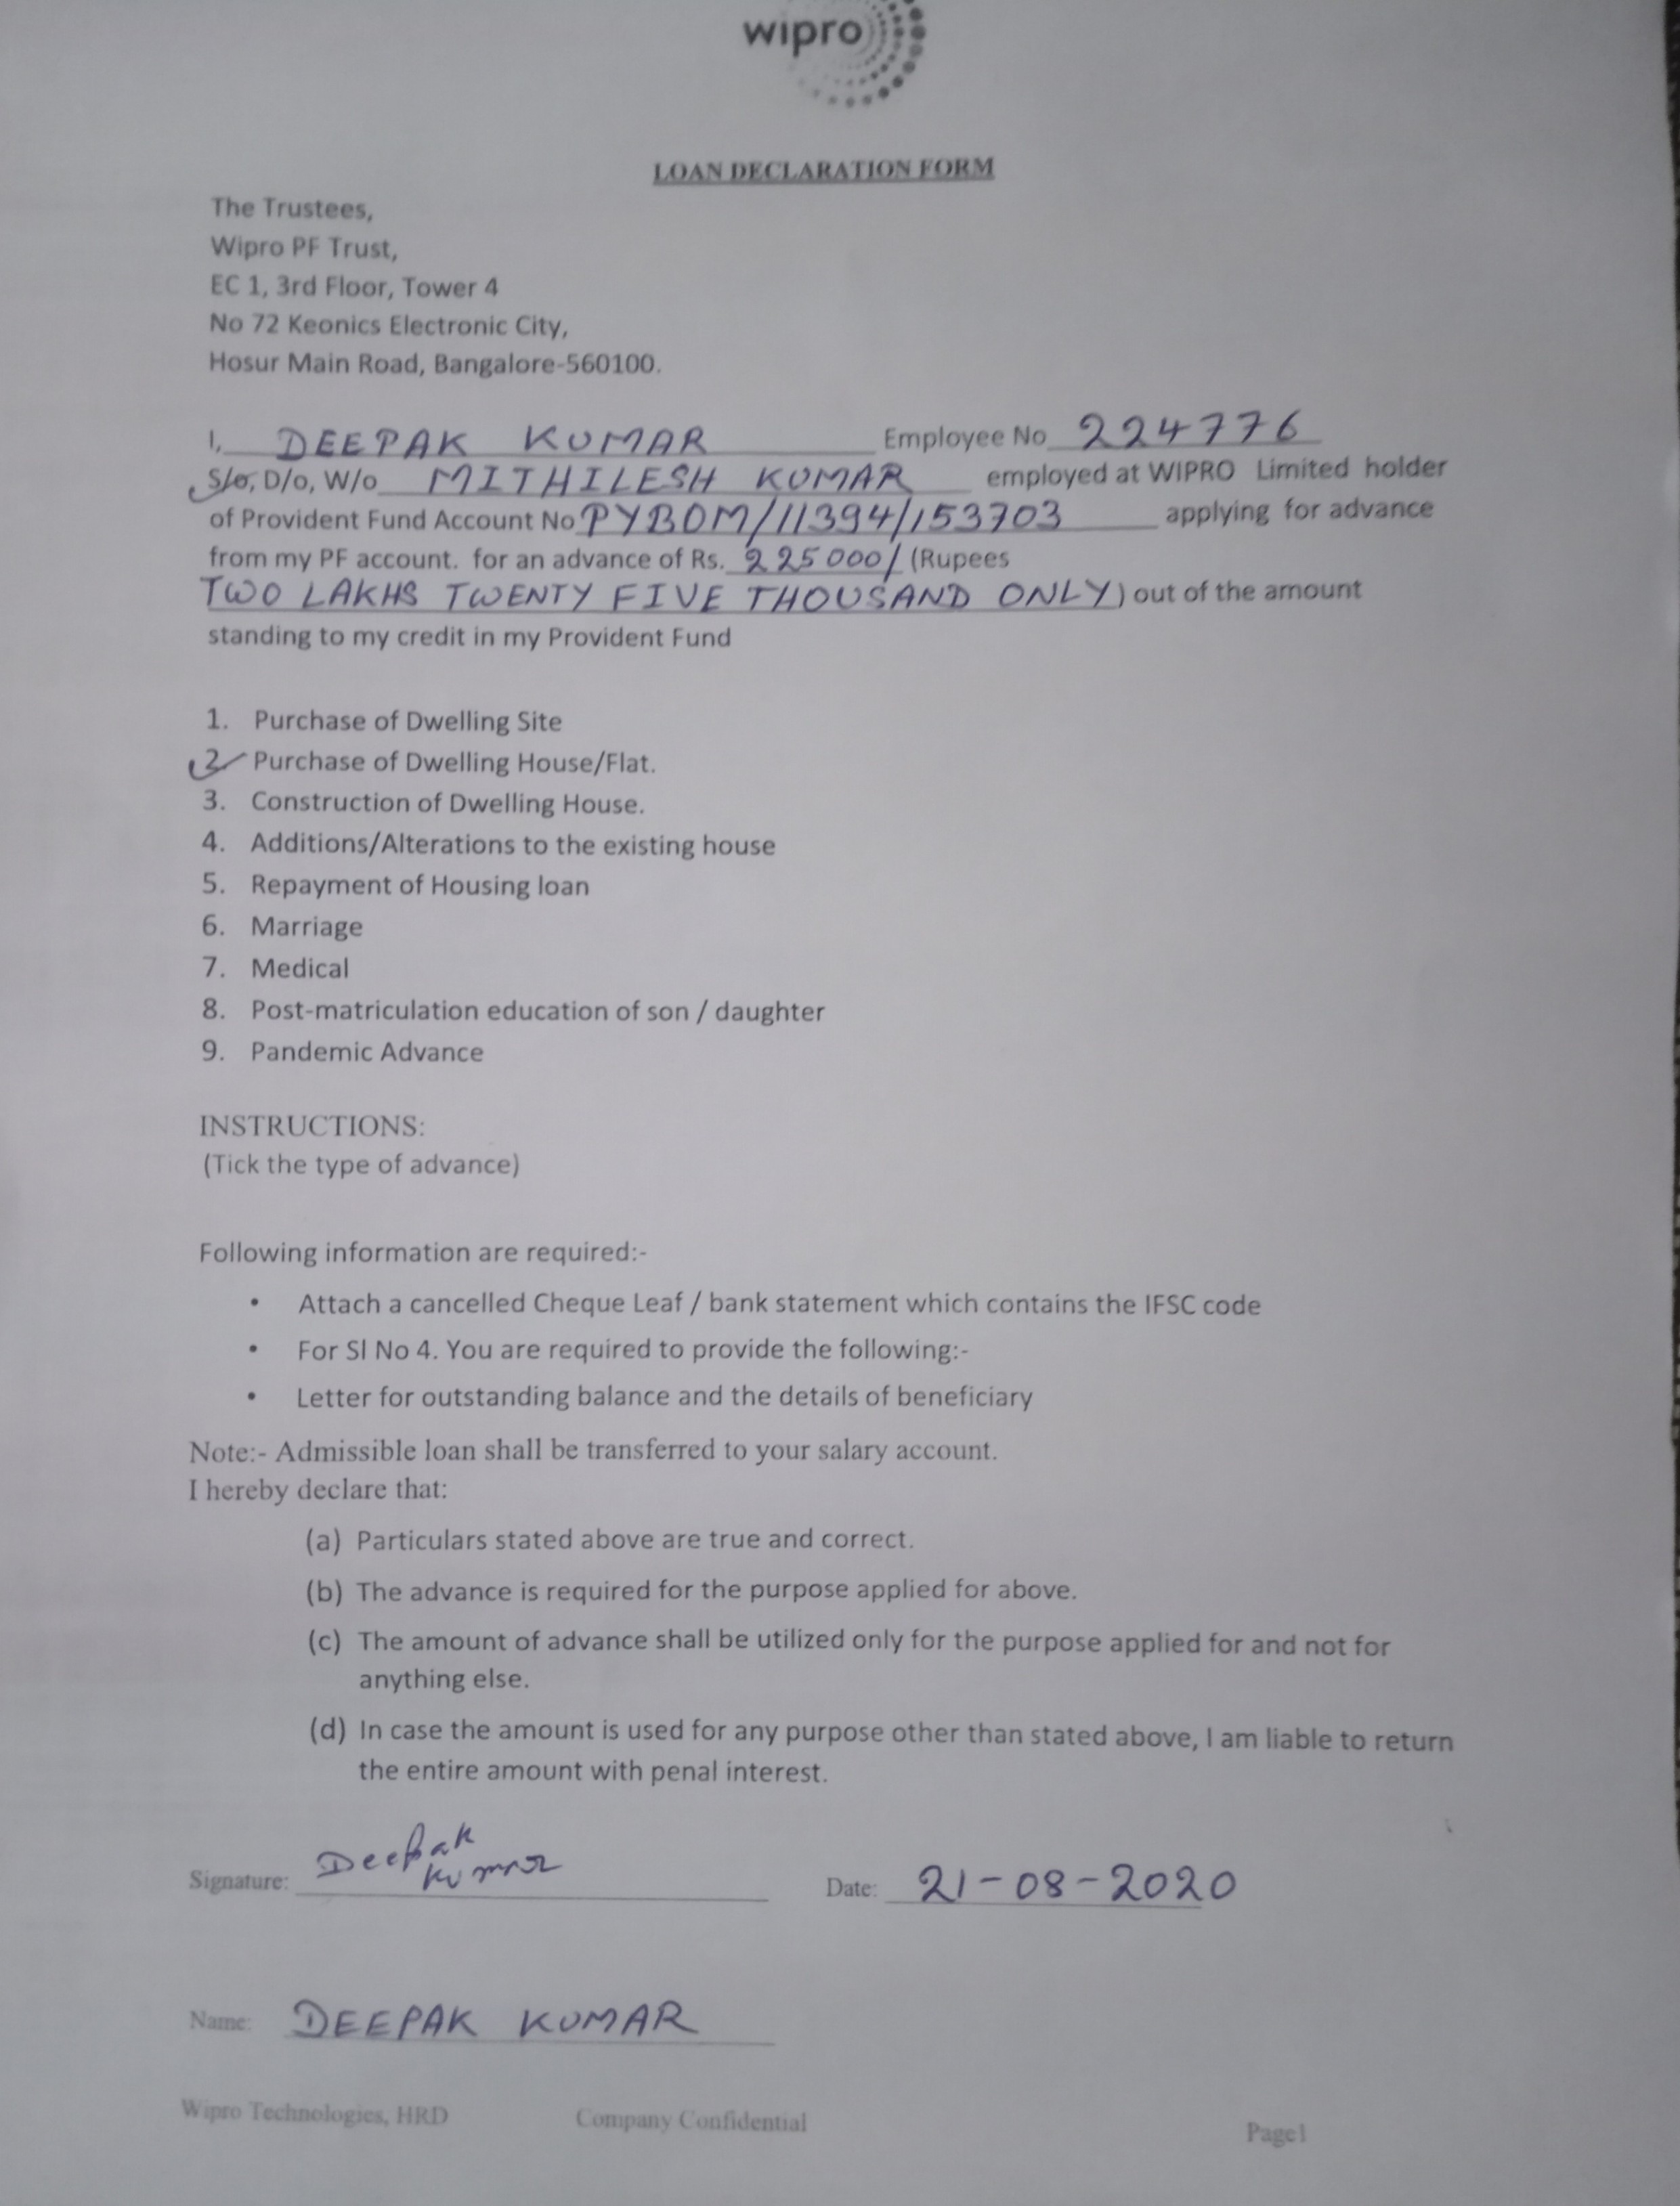 wipro
LOAN DECLARATION FORM
The Trustees,
Wipro PF Trust,
EC 1, 3rd Floor, Tower 4
No 72 Keonics Electronic City,
Hosur Main Road, Bangalore-560100.
I, DEEPAK KUMAR Employee No 224776
S/o, D/o, W/o MITHILESH KUMAR employed at WIPRO Limited holder
of Provident Fund Account No PYBOM/11394/153703 applying for advance
from my PF account. for an advance of Rs. 225000/ (Rupees
TWO LAKHS TWENTY FIVE THOUSAND ONLY) out of the amount
standing to my credit in my Provident Fund
1. Purchase of Dwelling Site
2. Purchase of Dwelling House/Flat.
3. Construction of Dwelling House.
4. Additions/Alterations to the existing house
5. Repayment of Housing loan
6. Marriage
7. Medical
8. Post-matriculation education of son / daughter
9. Pandemic Advance
INSTRUCTIONS:
(Tick the type of advance)
Following information are required:-
• Attach a cancelled Cheque Leaf / bank statement which contains the IFSC code
• For Sl No 4. You are required to provide the following:-
• Letter for outstanding balance and the details of beneficiary
Note:- Admissible loan shall be transferred to your salary account.
I hereby declare that:
(a) Particulars stated above are true and correct.
(b) The advance is required for the purpose applied for above.
(c) The amount of advance shall be utilized only for the purpose applied for and not for
anything else.
(d) In case the amount is used for any purpose other than stated above, I am liable to return
the entire amount with penal interest.
Signature: Deepak Kumar Date: 21-08-2020
Name: DEEPAK KUMAR
Wipro Technologies, HRD Company Confidential Page1